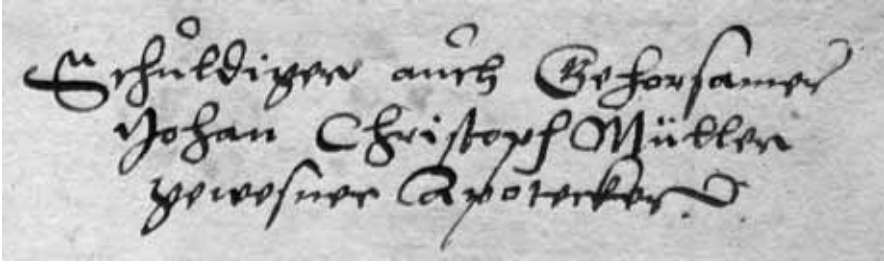 Schuldiger auch Gehorsamer
Johan Christoph Müller
gewesner Apotecker